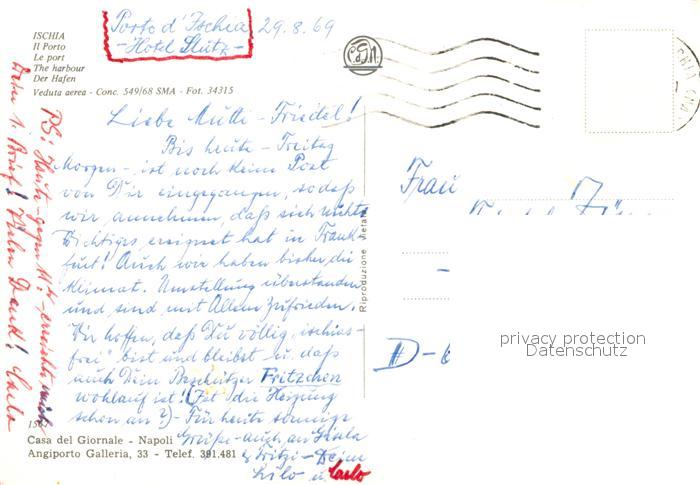 Porto d'Ischia 29.8.69
- Hotel Stutz -
ISCHIA
Il Porto
Le port
The harbour
Der Hafen
Veduta aerea - Conc. 549/68 SMA - Fot. 34315
C.d.G.N.
Liebe Mutti - Friedel!
Bis heute - Freitag
Morgen - ist noch keine Post
von Dir eingegangen, sodaß
wir annehmen, daß sich nichts
Wichtiges ereignet hat in Frank-
furt! Auch wir haben bisher die
Klimat. Umstellung überstanden
und sind mit Allem zufrieden.
Wir hoffen, daß Du völlig "ischias-
frei" bist und bleibst u. daß
auch Dein Beschützer Fritzchen
wohlauf ist! (Ist die Heizung
schon an?) - Für heute sonnige
Grüße - auch an Gisela
& Fritzi - Deine
Lilo u. Carlo
PS: Heute gegen 11h erreichte mich
Dein 1. Brief! Vielen Dank! Carlo
Riproduzione vietata
Frau
D-6
privacy protection
Datenschutz
Casa del Giornale - Napoli
Angiporto Galleria, 33 - Telef. 391.481